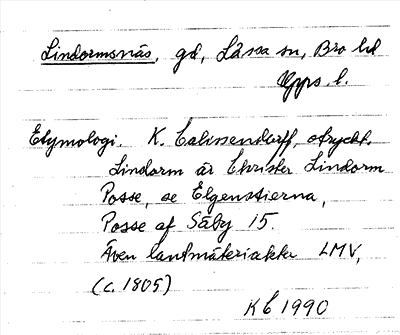 Lindormsnäs, gd, Låssa sn, Bro hd
Upps. l.
Etymologi. K. Calissendorff, otryckt.
Lindorm är Christer Lindorm
Posse, se Elgenstierna,
Posse af Säby 15.
Även lantmäteriakter LMV,
(c. 1805)
K C 1990